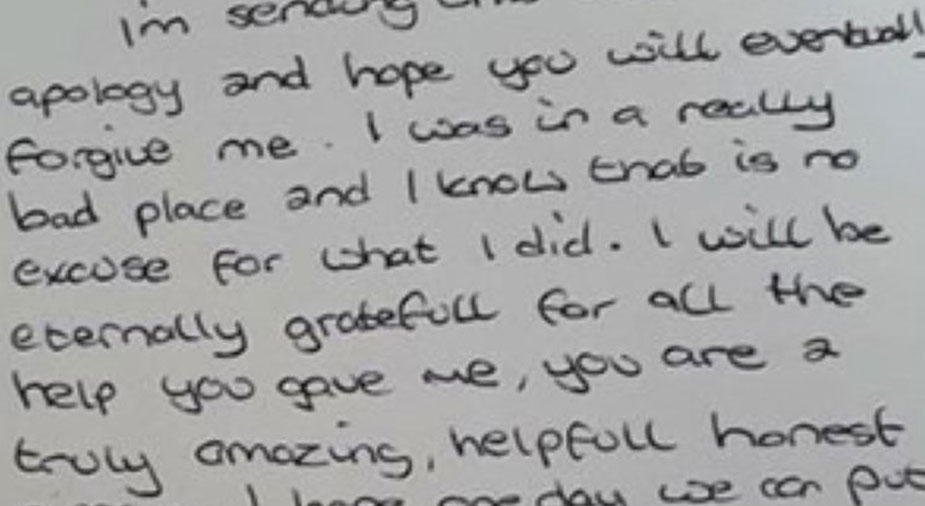 im sending
apology and hope you will eventually
forgive me. I was in a really
bad place and I know that is no
excuse for what I did. I will be
eternally gratefull for all the
help you gave me, you are a
truly amazing, helpfull honest
I hope one day we can put